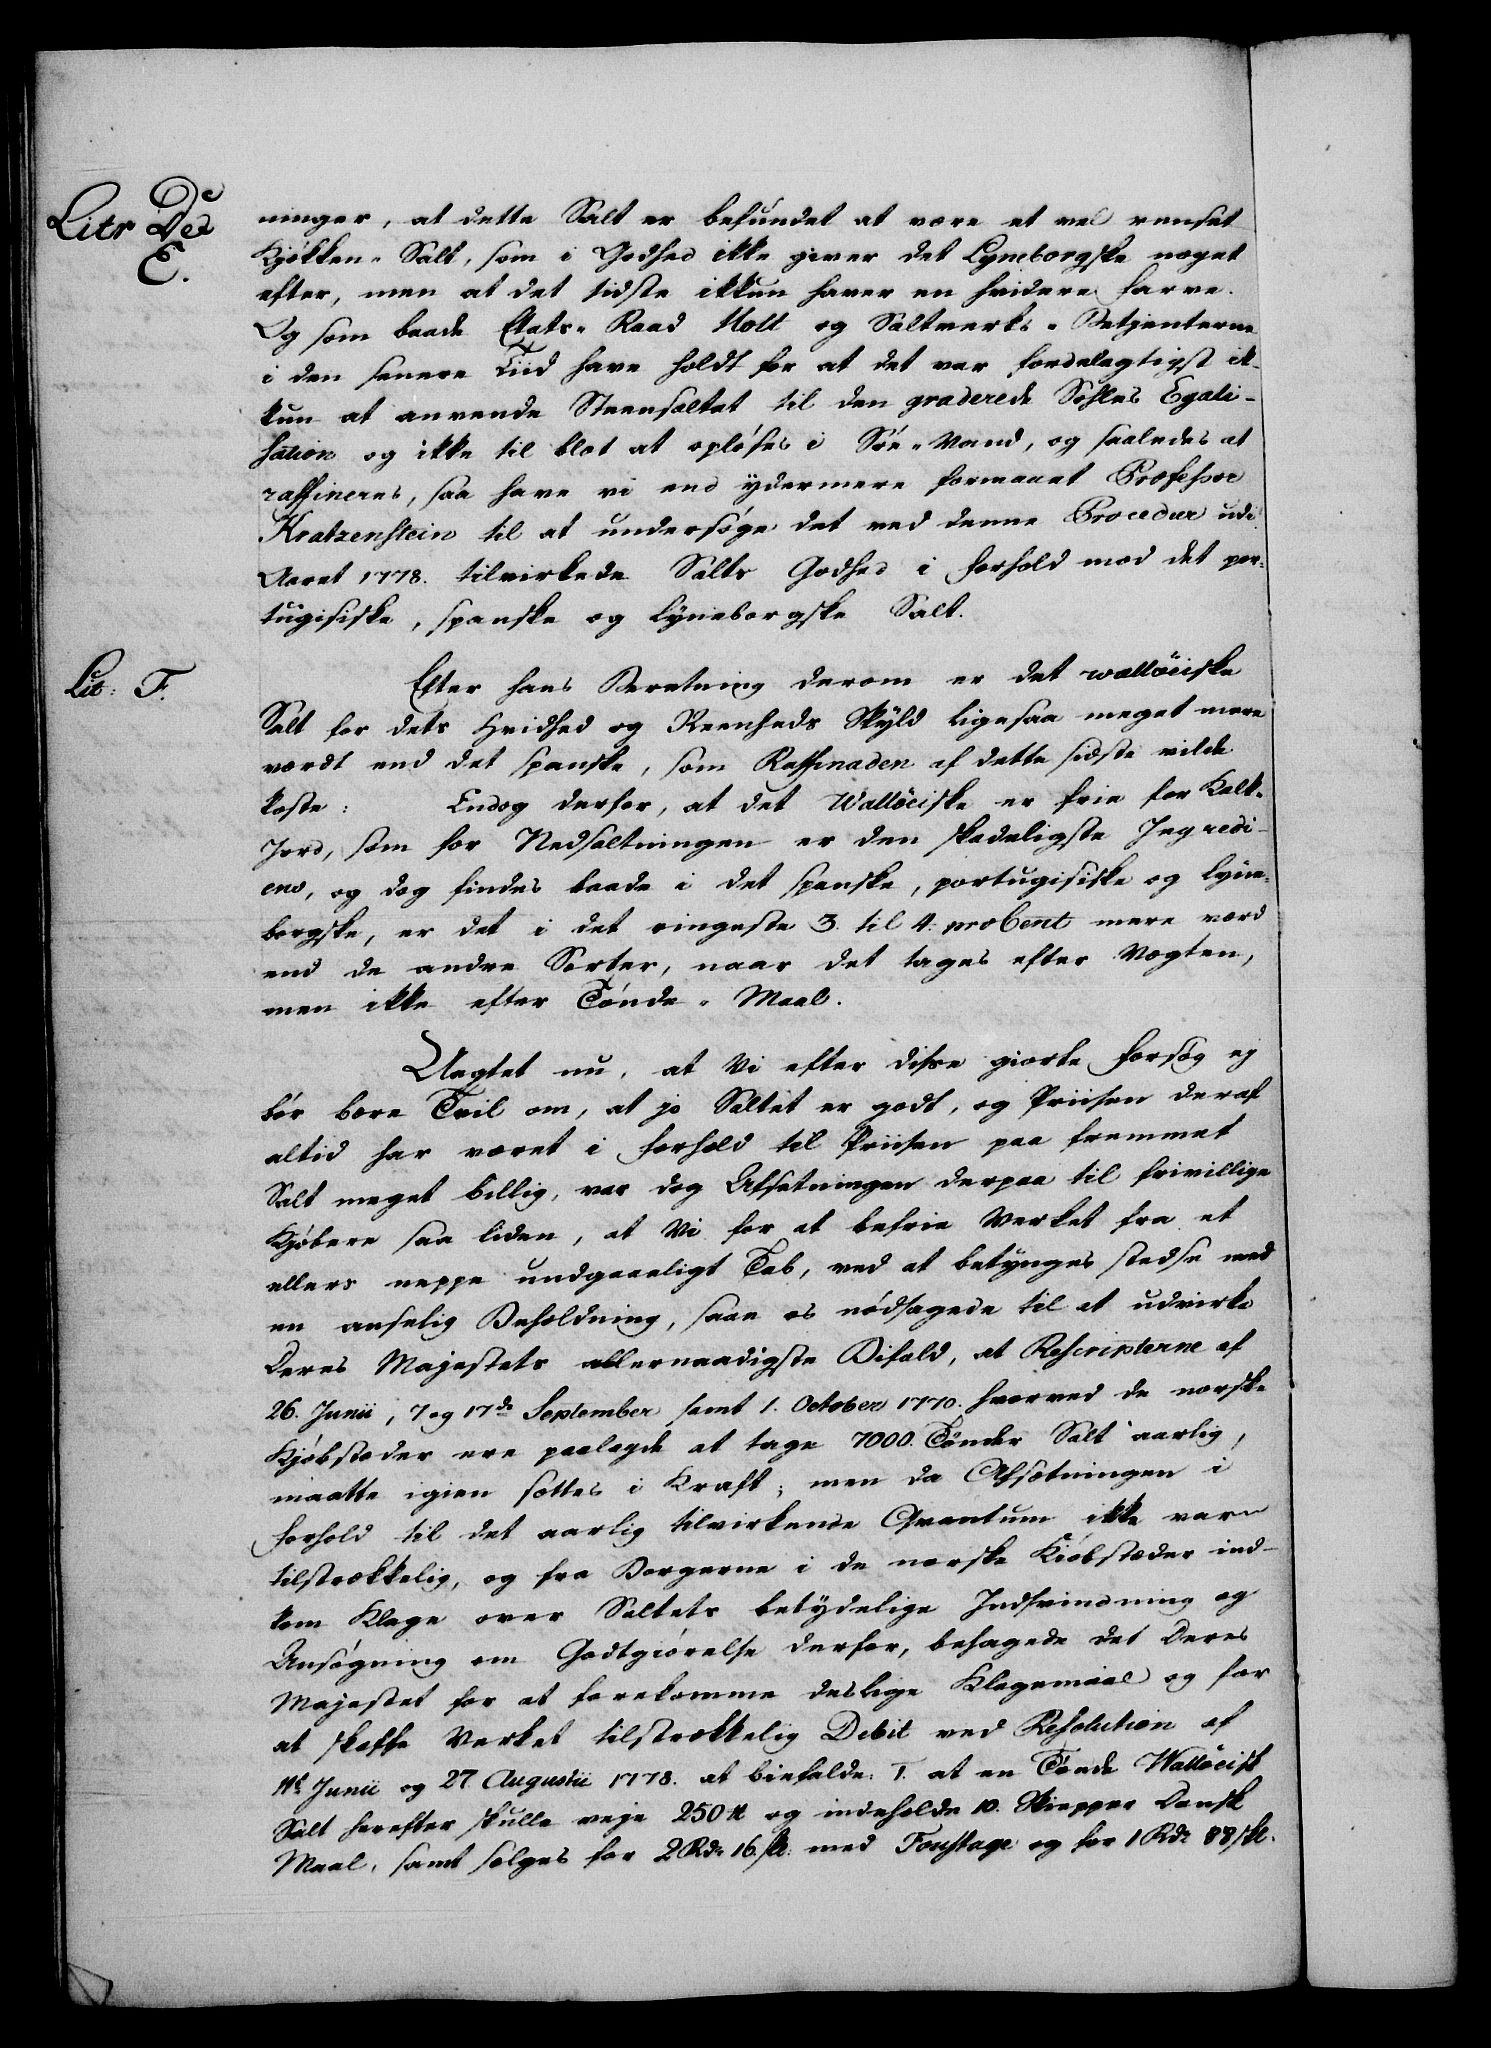 Litr D et
E.
ninger, at dette Salt er befundet at være et vel renset
Kjøkken-Salt, som i Godhed ikke giver det Lyneborgske noget
efter, men at det sidste ikkun haver en hvidere Farve.
Og som baade Etats-Raad Holt og Saltverks-Betjenterne
i den senere Tiid have holdt for at det var fordelagtigst ik-
kun at anvende Steensaltet til den graderede Sohles Egali-
sation og ikke til blot at opløses i Søe-Vand, og saaledes at
raffineres, saa have vi end ydermere formaaet Professor
Kratzenstein til at undersøge det ved denne Procedur udi
Aaret 1778. tilvirkede Salts Godhed i Forhold mod det por-
tugisiske, spanske og lyneborgske Salt.
Lit: F.
Efter hans Beretning derom er det walløeiske
Salt for dets Hvidhed og Reenheds Skyld ligesaa meget mere
værdt end det spanske, som Raffinaden af dette sidste vilde
koste: Endog derfor, at det Walløeiske er frie for Kalk-
Jord, som for Nedsaltningen er den skadeligste Ingredi-
ens, og dog findes baade i det spanske, portugisiske og lyne-
borgske, er det i det ringeste 3. til 4. proCent mere værd
end de andre Sorter, naar det tages efter Vægten,
men ikke efter Tønde-Maal.
Uagtet nu, at Vi efter disse giorte Forsøg ej
bør bære Tvil om, at jo Saltet er godt, og Priisen deraf
altid har været i Forhold til Priisen paa fremmet
Salt meget billig, var dog Afsætningen derpaa til frivillige
Kjøbere saa liden, at Vi for at befrie Verket fra et
ellers neppe undgaaeligt Tab, ved at betynges stedse med
en anselig Beholdning, saae os nødsagede til at udvirke
Deres Majestets allernaadigste Bifald, at Rescripterne af
26. Junii, 7 og 17de September samt 1. October 1770. hvorved de norske
Kjøbstæder ere paalagde at tage 7000. Tønder Salt aarlig,
maatte igien sættes i Kraft; men da Afsætningen i
Forhold til det aarlig tilvirkende Qvantum ikke var
tilstrækkelig, og fra Borgerne i de norske Kiøbstæder ind-
kom Klage over Saltets betydelige Indsvindning og
Ansøgning om Godtgiørelse derfor, behagede det Deres
Majestet for at forekomme deslige Klagemaal og for
at skaffe Verket tilstrækkelig Debit ved Resolution af
11te Junii og 27. Augustii 1778. at biefalde: 1. at en Tønde Walløeisk
Salt herefter skulle veje 250 ℔ og indeholde 10. Skiepper Dansk
Maal, samt sælges for 2 Rdr 16 sk. med Foustage og for 1 Rdr 88 sk.